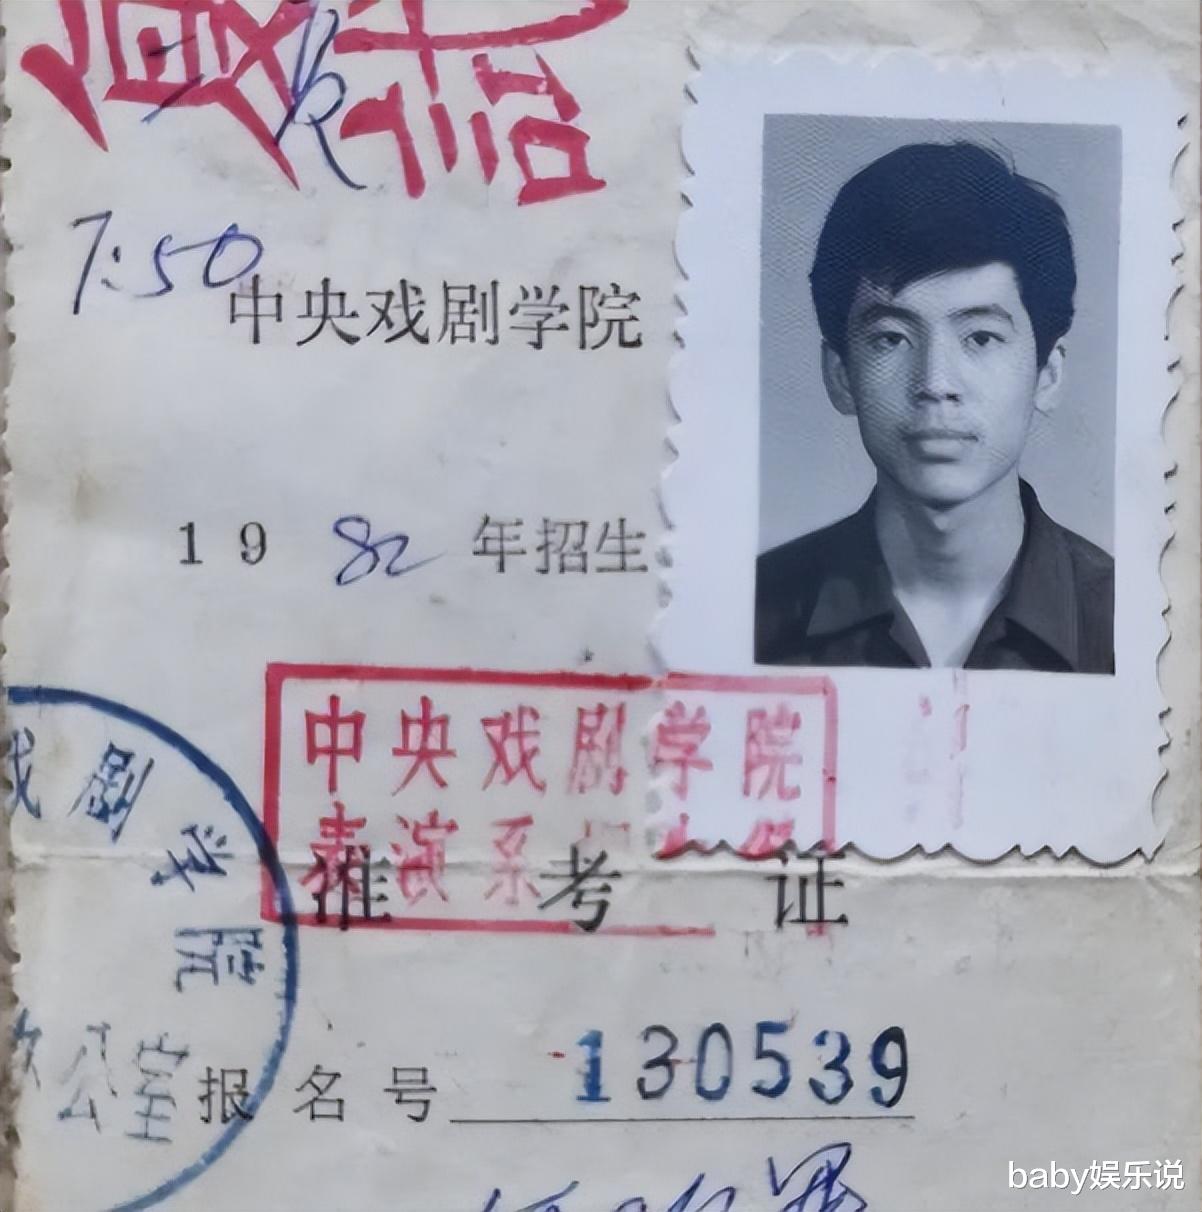 7:50
中央戏剧学院
1982年招生
中央戏剧学院
表演系
准考证
戏剧学院
办公室
报名号 130539
baby娱乐说